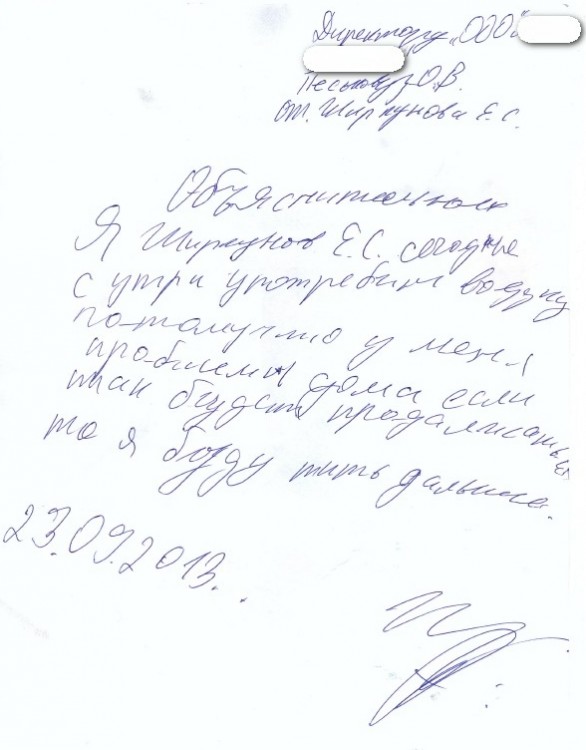 Директору „ООО"
Песькову О.В.
от Ширкунова Е.С.
Объяснительная
Я Ширкунов Е.С. сегодня
с утра употребил водку
потомучто у меня
проблемы дома если
так будет продалжаться
то я буду пить дальше.
23.09.2013.